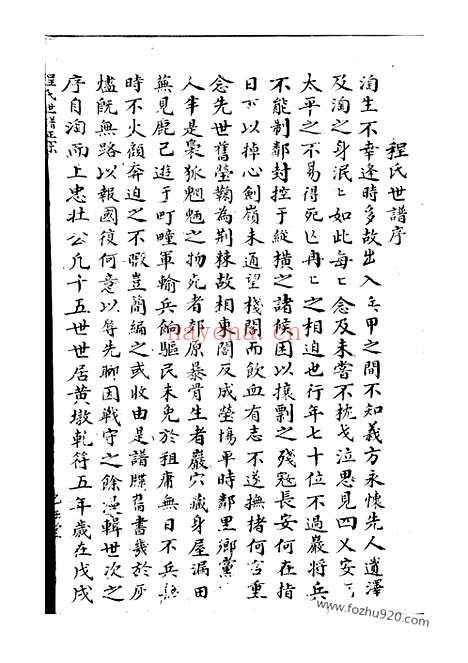 程氏世譜序
淘生不幸逢時多故出入兵甲之間不知義方永懷先人遺澤
及淘之身泯泯如此每每念及未嘗不枕戈泣思見四乂安
太平之不易得死亡冉冉之相迫也行年七十位不過嚴將兵
不能制鄰封控于縱橫之諸候困以攘剽之殘寇長安何在指
日下以掉心劍嶺未通望棧閣而飲血有志不遂撫楮何言重
念先世舊塋鞠為荆棘故相東閣反成塋塲平時鄰里鄉黨
人半是梟狐魑魅之物死者郊原暴骨生者巖穴藏身屋漏田
蕪見鹿已遊于町畽軍輸兵餉驅民未免於租庸無日不兵
時不火顧奔迫之不暇豈簡編之或收由是譜牒舊書幾於灰
燼既無路以報國復何意以辱先聊因戰守之餘遂輯世次之
序自淘而上忠壯公凡十五世世居黄墩乾符五年歲在戊戌
程氏世譜正宗
nayona.cn
本图片来自浮竹网
www.fozhu920.com